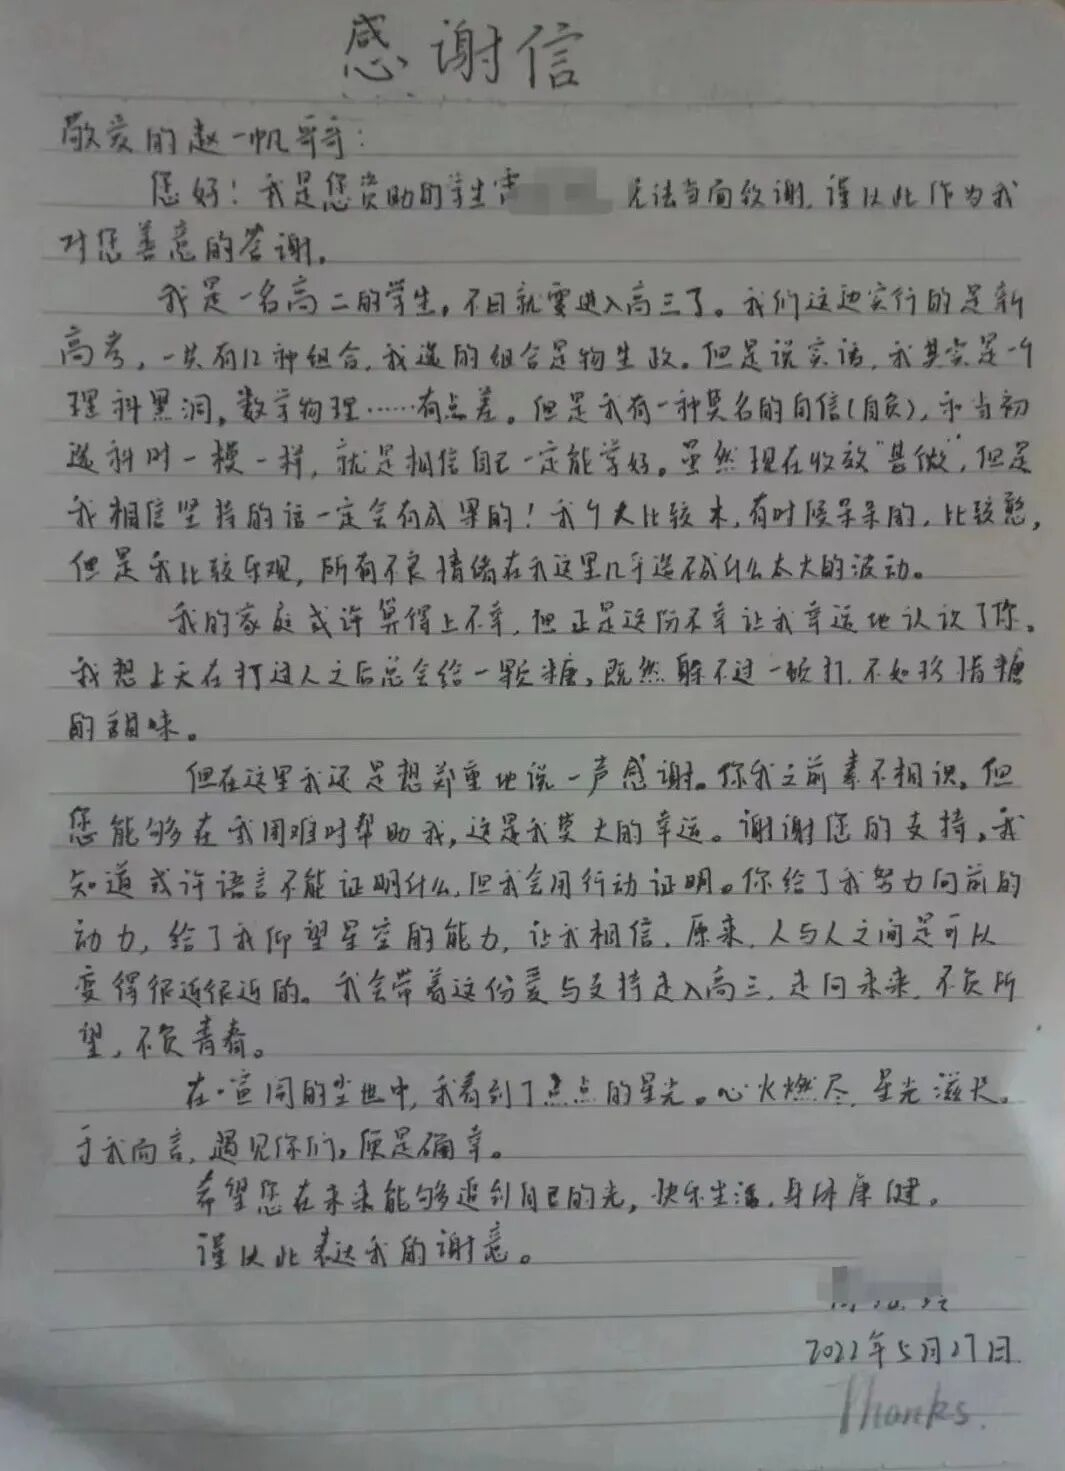 感谢信
敬爱的赵一帆哥哥：
您好！我是您资助的学生雷 无法当面致谢，谨以此作为我
对您善意的答谢。
我是一名高二的学生，不日就要进入高三了。我们这边实行的是新
高考，一共有12种组合，我选的组合是物生政。但是说实话，我其实是一个
理科黑洞，数学物理……有点差。但是我有一种莫名的自信(自负)，和当初
选科时一模一样，就是相信自己一定能学好。虽然现在收效"甚微"，但是
我相信坚持的话一定会有成果的！我个人比较木，有时候呆呆的，比较憨，
但是我比较乐观，所有不良情绪在我这里几乎造不成什么太大的波动。
我的家庭或许算得上不幸，但正是这份不幸让我幸运地认识了你。
我想上天在打过人之后总会给一颗糖，既然躲不过一顿打，不如珍惜糖
的甜味。
但在这里我还是想郑重地说一声感谢。你我之前素不相识，但
您能够在我困难时帮助我，这是我莫大的幸运。谢谢您的支持，我
知道或许语言不能证明什么，但我会用行动证明。你给了我努力向前的
动力，给了我仰望星空的能力，让我相信，原来，人与人之间是可以
变得很近很近的。我会带着这份爱与支持走入高三，走向未来，不负所
望，不负青春。
在喧闹的尘世中，我看到了点点的星光。心火燃尽，星光滋长。
于我而言，遇见你们，便是确幸。
希望您在未来能够追到自己的光，快乐生活，身体康健。
谨以此表达我的谢意。
2022年5月27日
Thanks.